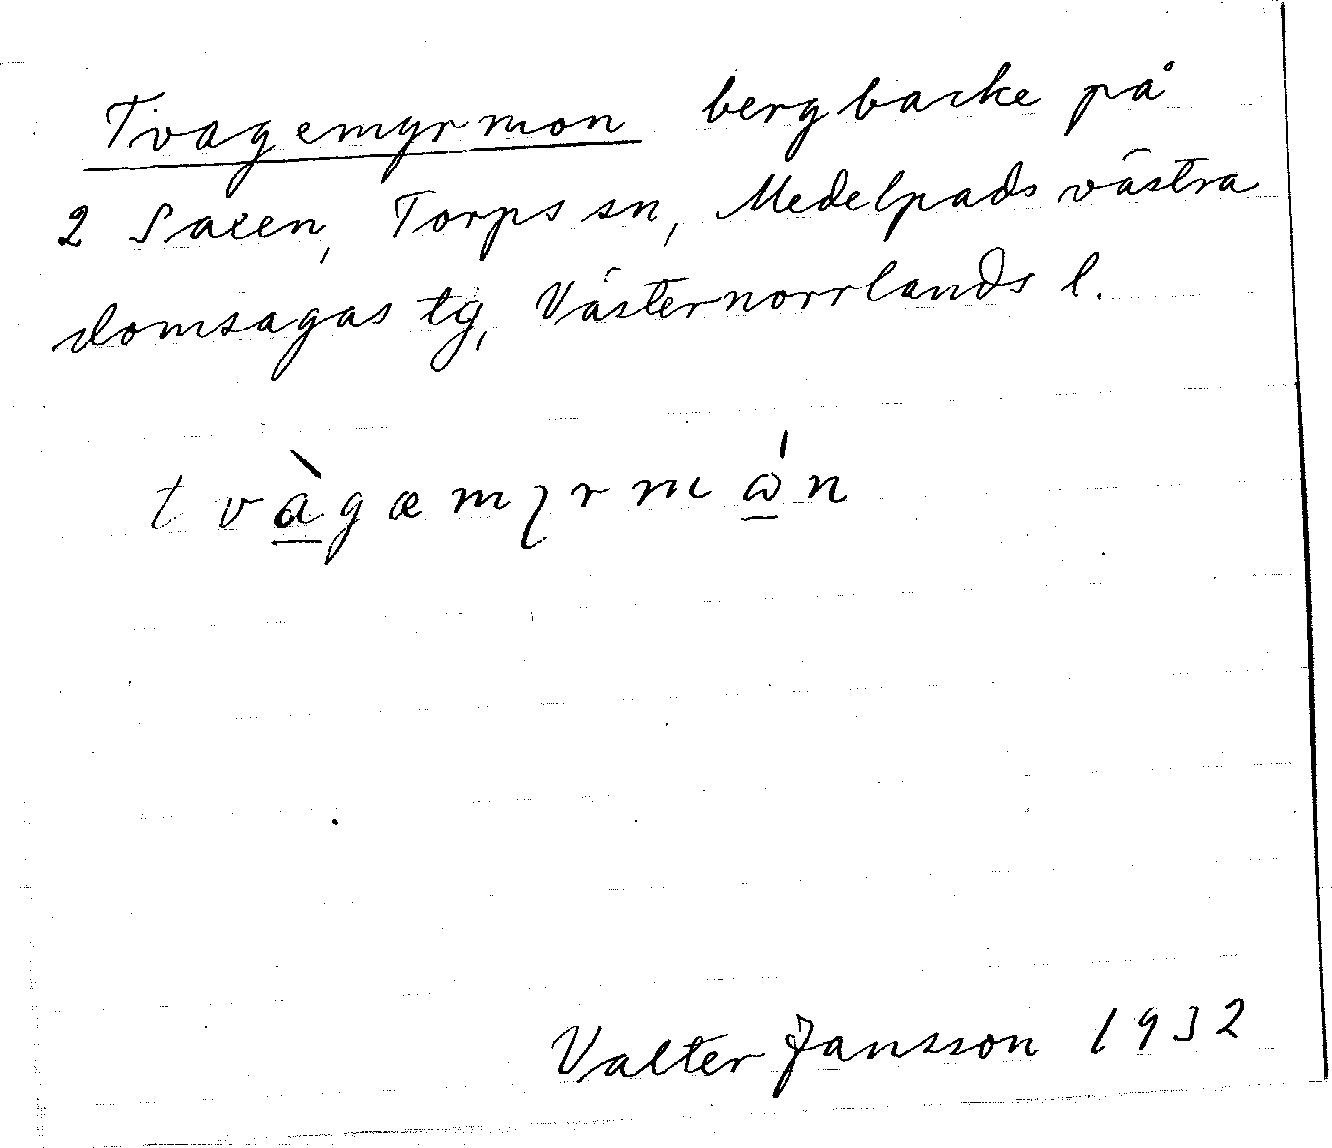 Tvagemyrmon bergbacke på
2 Saxen, Torps sn, Medelpads västra
domsagas tg, Västernorrlands l.
tvàgæmyrmɷ́n
Valter Jansson 1932